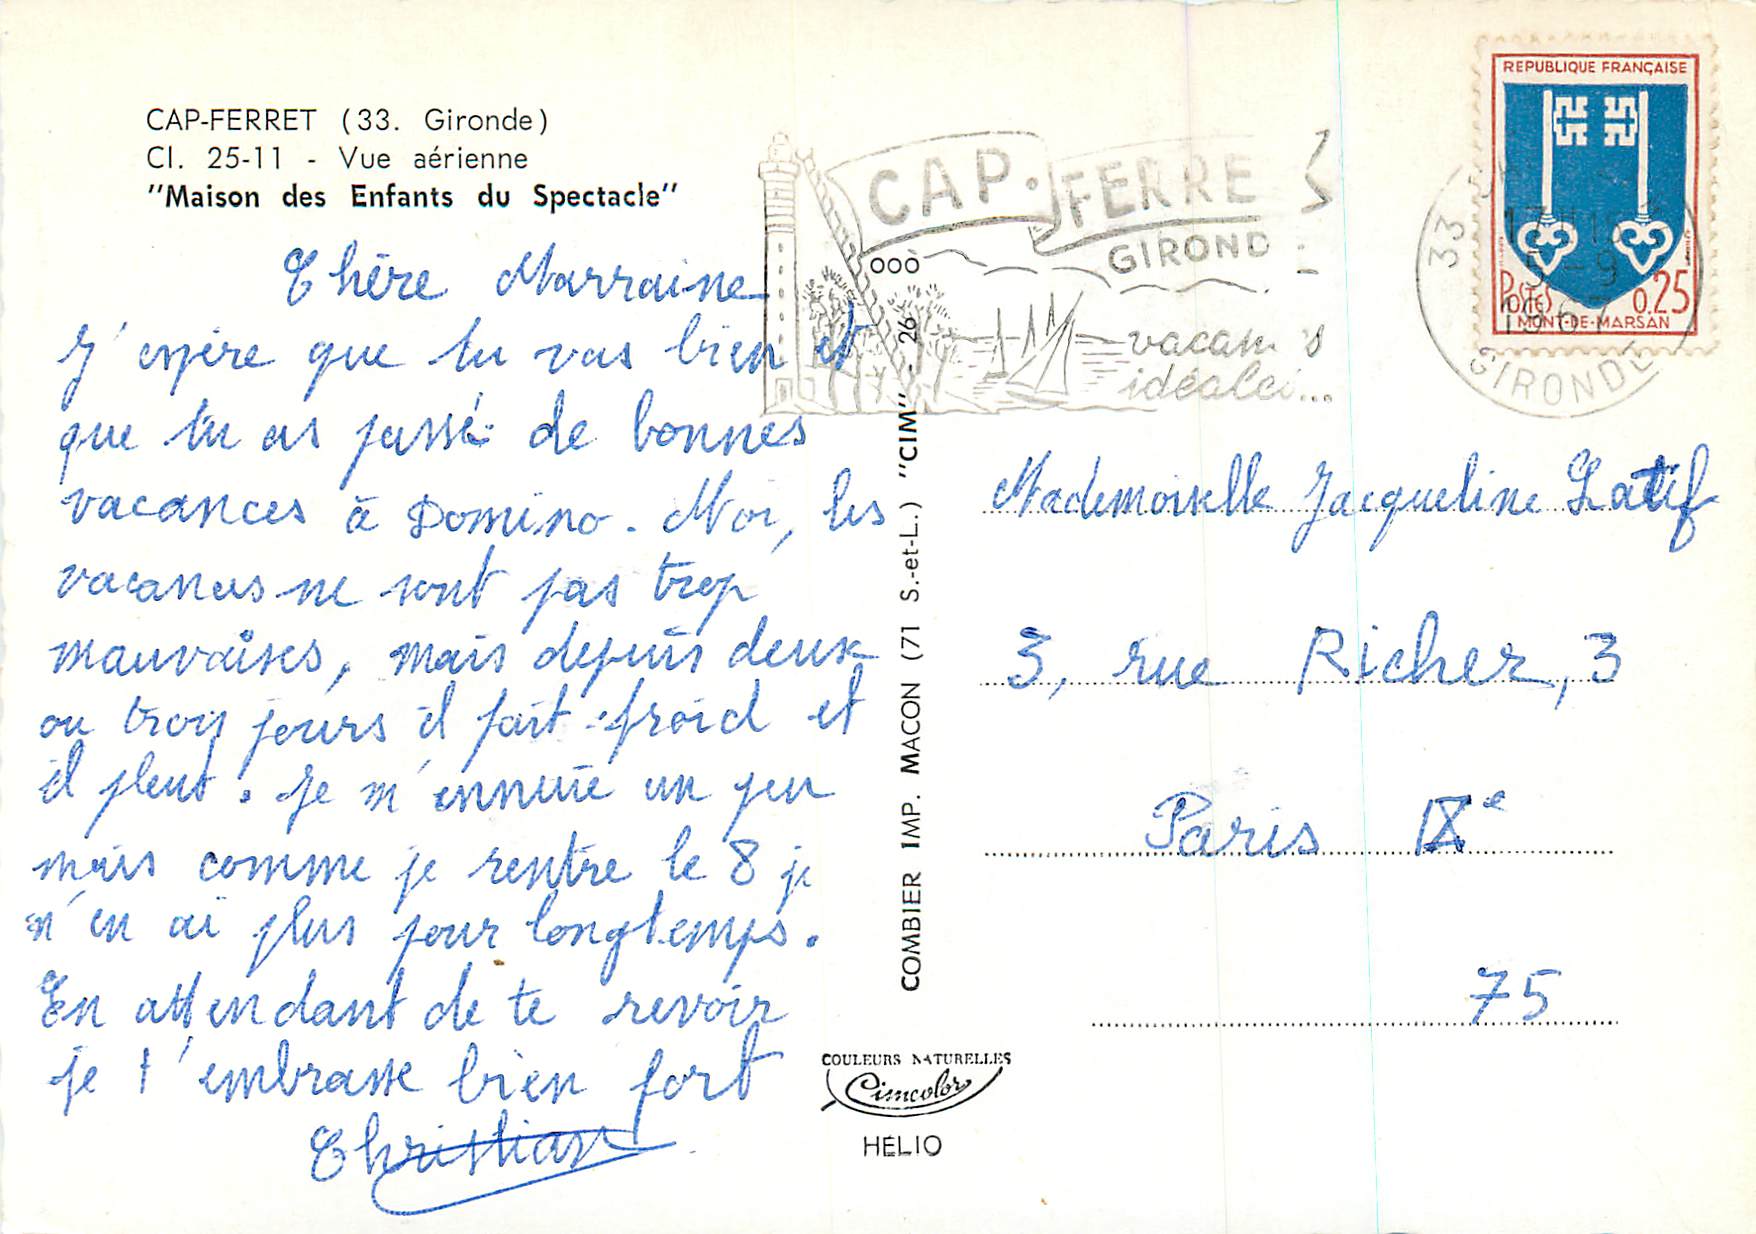 CAP-FERRET (33. Gironde)
Cl. 25-11 - Vue aérienne
"Maison des Enfants du Spectacle"
Chère Marraine
J'espère que tu vas bien et
que tu as passé de bonnes
vacances à Domino. Moi, les
vacances ne sont pas trop
mauvaises, mais depuis deux
ou trois jours il fait froid et
il pleut. Je m'ennuie un peu
mais comme je rentre le 8 je
n'en ai plus pour longtemps.
En attendant de te revoir
je t'embrasse bien fort
Christian
COMBIER IMP. MACON (71 S.-et-L.) "CIM" - 26
COULEURS NATURELLES
Cimcolor
HÉLIO
CAP-FERRE
GIROND
vacan s
idéales...
REPUBLIQUE FRANÇAISE
POSTES 0,25
MONT-DE-MARSAN
33
17H15
5-9
1967
GIRONDE
Mademoiselle Jacqueline Latif
3, rue Richer, 3
Paris IXe
75